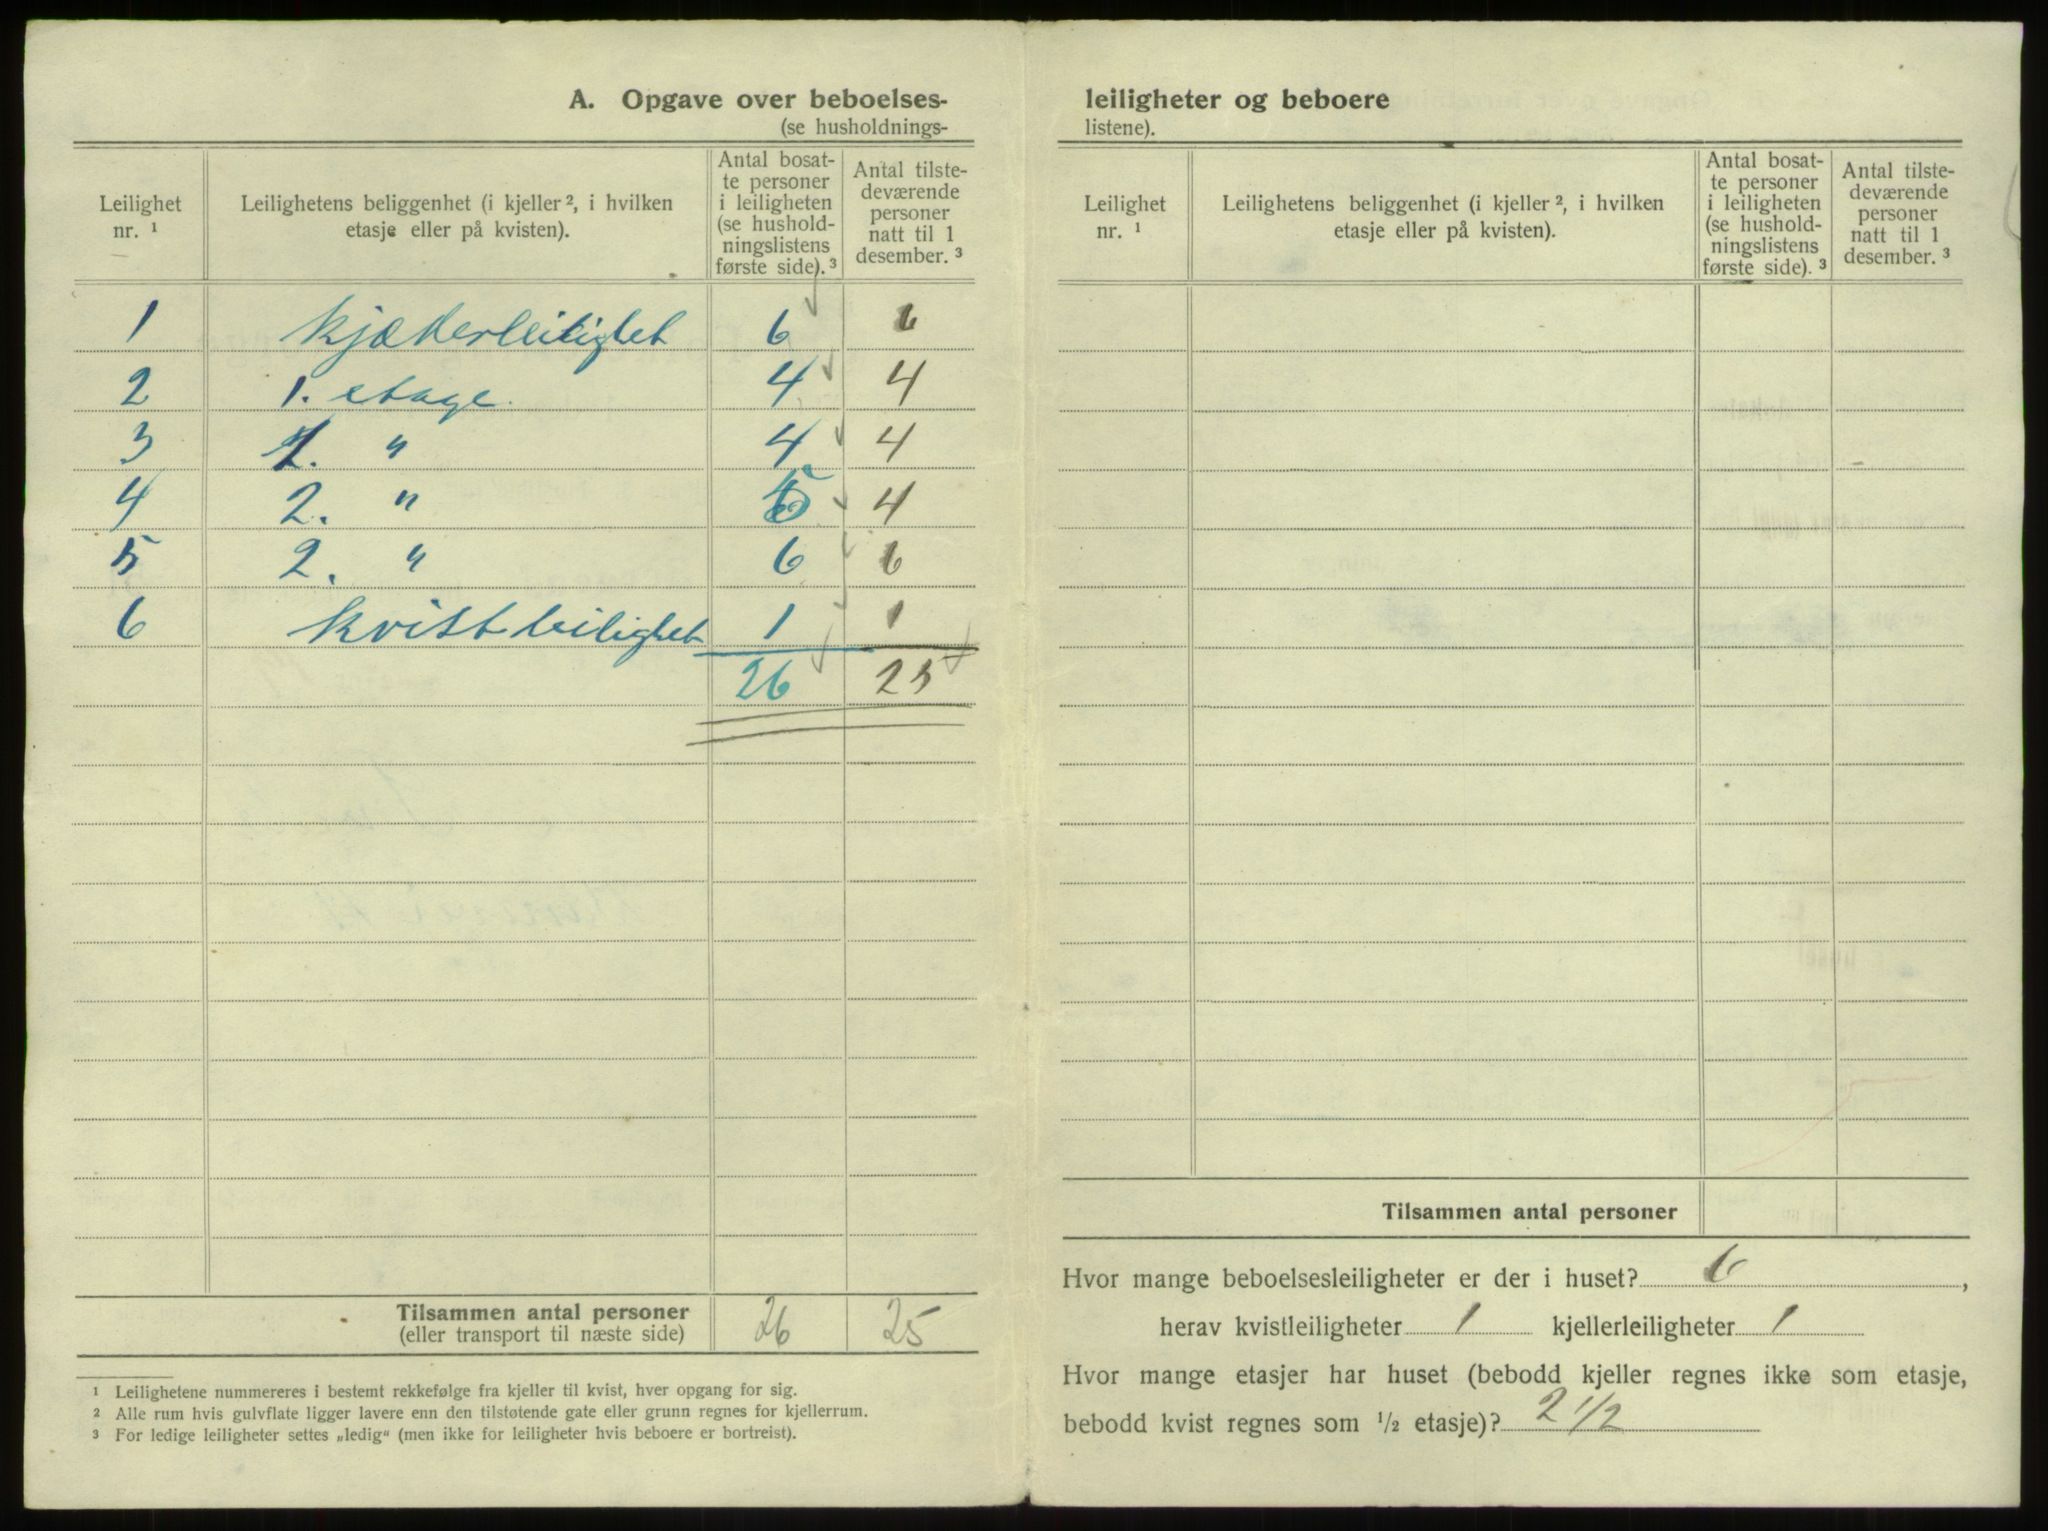 A. Opgave over beboelses-
(se husholdnings-
Leilighet nr. ¹
Leilighetens beliggenhet (i kjeller ², i hvilken etasje eller på kvisten).
Antal bosat-
te personer
i leiligheten
(se hushold-
ningslistens
første side). ³
Antal tilste-
deværende
personer
natt til 1
desember. ³
1 kjælderleilighet 6 6
2 1. etage. 4 4
3 1. " 4 4
4 2. " 5 4
5 2. " 6 6
6 kvistleilighet 1 1
26 25
Tilsammen antal personer 26 25
(eller transport til næste side)
¹ Leilighetene nummereres i bestemt rekkefølge fra kjeller til kvist, hver opgang for sig.
² Alle rum hvis gulvflate ligger lavere enn den tilstøtende gate eller grunn regnes for kjellerrum.
³ For ledige leiligheter settes „ledig“ (men ikke for leiligheter hvis beboere er bortreist).
leiligheter og beboere
listene).
Leilighet nr. ¹
Leilighetens beliggenhet (i kjeller ², i hvilken etasje eller på kvisten).
Antal bosat-
te personer
i leiligheten
(se hushold-
ningslistens
første side). ³
Antal tilste-
deværende
personer
natt til 1
desember. ³
Tilsammen antal personer
Hvor mange beboelsesleiligheter er der i huset? 6,
herav kvistleiligheter 1 kjellerleiligheter 1
Hvor mange etasjer har huset (bebodd kjeller regnes ikke som etasje,
bebodd kvist regnes som ½ etasje)? 2 1/2